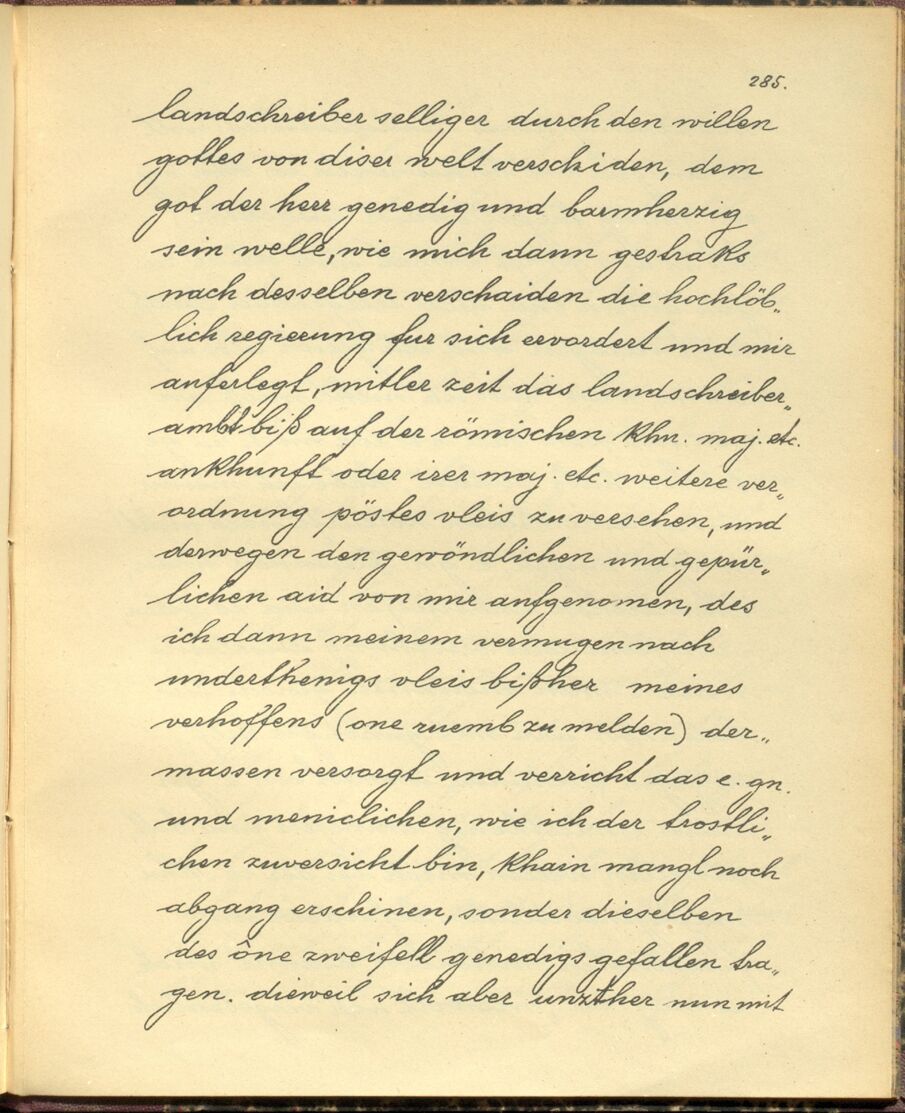 285.
landschreiber selliger durch den willen
gottes von diser welt verschiden, dem
got der herr genedig und barmherzig
sein welle, wie mich dann gestraks
nach desselben verschaiden die hochlöb„
lich regierung fur sich ervordert und mir
auferlegt, mitler zeit das landschreiber„
ambt biß auf der römischen Khn. maj. etc.
ankhunft oder irer maj. etc. weitere ver„
ordnung pöstes vleis zu versehen, und
derwegen den gewöndlichen und gepür„
lichen aid von mir aufgenomen, des
ich dann meinem vermugen nach
underthenigs vleis bißher meines
verhoffens (one ruemb zu melden) der„
massen versorgt und verricht das e. gn.
und meniclichen, wie ich der trostli„
chen zuversicht bin, Khain mangl noch
abgang erschinen, sonder dieselben
des ône zweifell genedigs gefallen tra„
gen. dieweil sich aber unzther nun mit